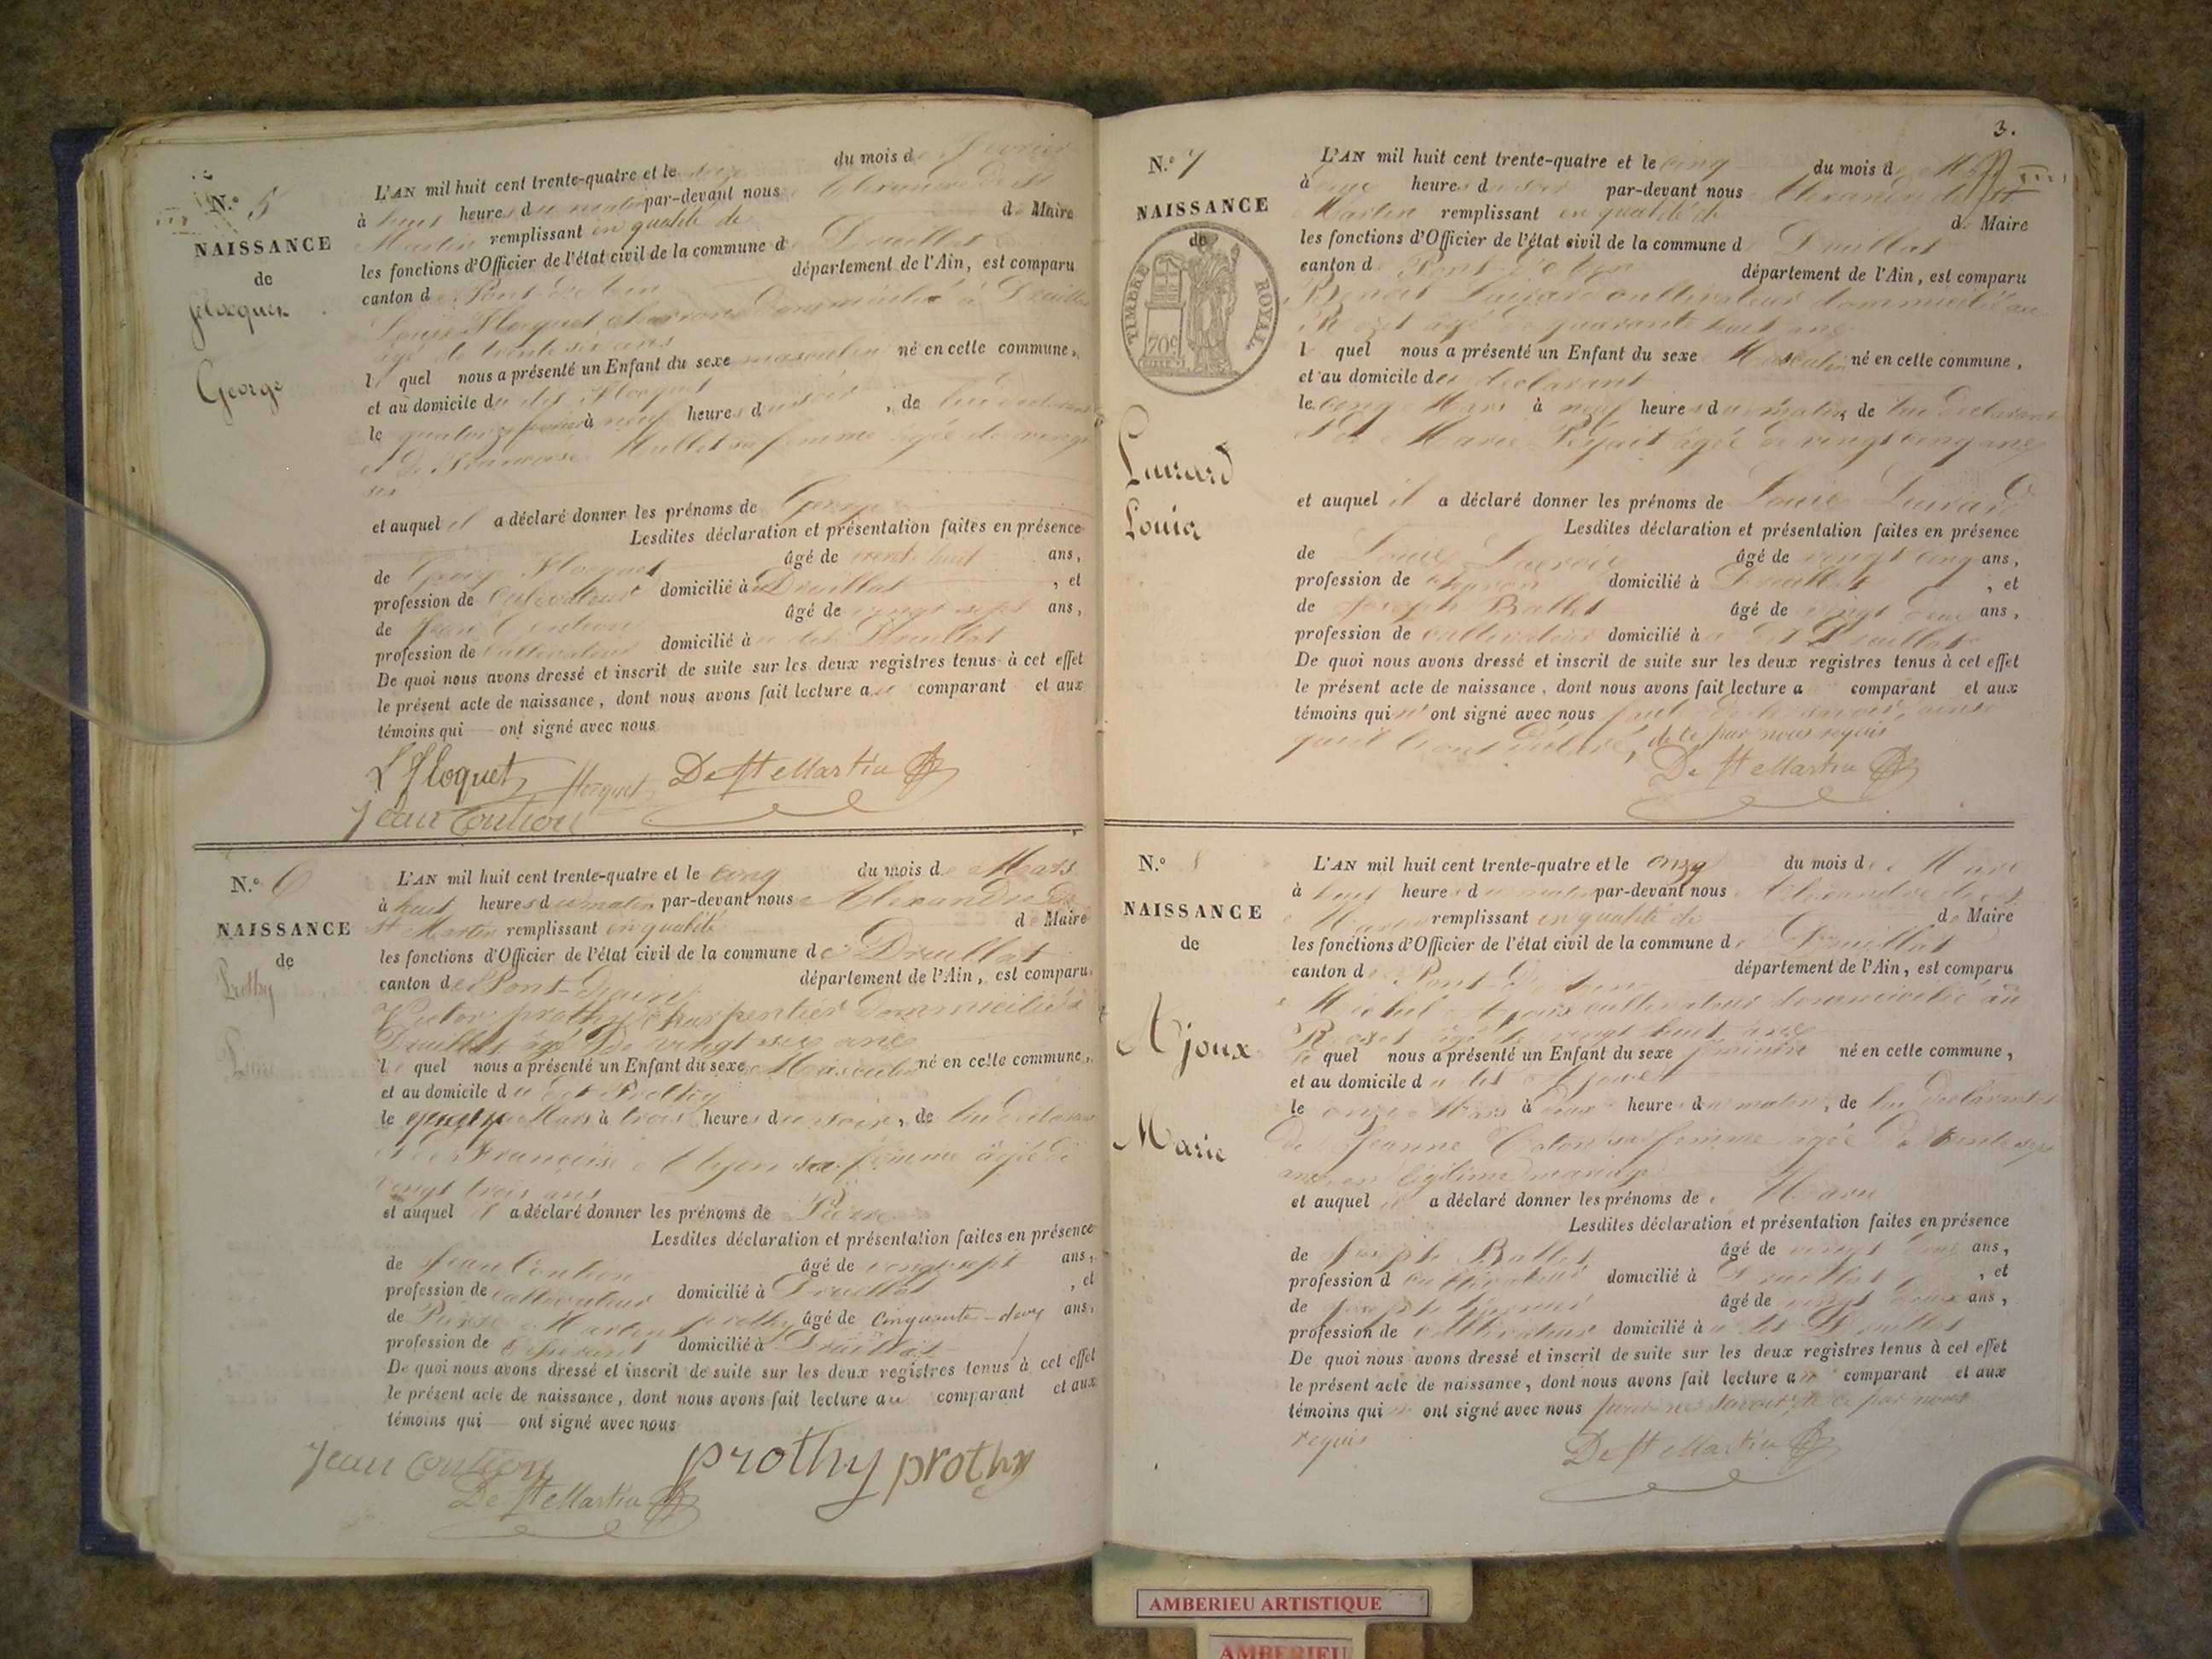 N.º 5
NAISSANCE
de
George
L'AN mil huit cent trente-quatre et le du mois de Février
à huit heures du matin par-devant nous Alexandre de St
Martin remplissant en qualité de de Maire
les fonctions d'Officier de l'état civil de la commune de Druillat
canton de Pont-d'Ain département de l'Ain, est comparu
Louis Floquet domicilié à Druillat
âgé de trente six ans
lequel nous a présenté un Enfant du sexe masculin né en cette commune,
et au domicile du dit Floquet
le quatorze février à neuf heures du soir, de lui déclarant
et de Françoise Mullet sa femme âgée de vingt
six
et auquel il a déclaré donner les prénoms de George
Lesdites déclaration et présentation faites en présence
de Floquet âgé de huit ans,
profession de Cultivateur domicilié à Druillat, et
de Jean Contion âgé de vingt sept ans,
profession de Cultivateur domicilié à Druillat
De quoi nous avons dressé et inscrit de suite sur les deux registres tenus à cet effet
le présent acte de naissance, dont nous avons fait lecture au comparant et aux
témoins qui ont signé avec nous
L Floquet floquet De St Martin
Jean Contion
N.º 6
NAISSANCE
de
Prothy
L'AN mil huit cent trente-quatre et le cinq du mois de Mars
à huit heures du matin par-devant nous Alexandre de
St Martin remplissant en qualité de Maire
les fonctions d'Officier de l'état civil de la commune de Druillat
canton de Pont-d'ain département de l'Ain, est comparu
Victor prothy charpentier domicilié à
Druillat âgé de vingt six ans
lequel nous a présenté un Enfant du sexe Masculin né en cette commune,
et au domicile du dit Prothy
le Mars à trois heures du soir, de lui déclarant
et de Françoise sa femme âgée de
vingt trois ans
et auquel il a déclaré donner les prénoms de Pierre
Lesdites déclaration et présentation faites en présence
de Jean Contion âgé de vingt sept ans,
profession de Cultivateur domicilié à Druillat, et
de Pierre Martin prothy âgé de cinquante-deux ans,
profession de domicilié à Druillat
De quoi nous avons dressé et inscrit de suite sur les deux registres tenus à cet effet
le présent acte de naissance, dont nous avons fait lecture au comparant et aux
témoins qui ont signé avec nous
Jean Contion prothy prothy
De St Martin
3.
N.º 7
NAISSANCE
de
TIMBRE ROYAL
70c
Louis
L'AN mil huit cent trente-quatre et le cinq du mois de
à heures du soir par-devant nous Alexandre de St
Martin remplissant en qualité de de Maire
les fonctions d'Officier de l'état civil de la commune de Druillat
canton de Pont-d'Ain département de l'Ain, est comparu
Benoit cultivateur domicilié au
Rozet âgé de quarante huit ans
lequel nous a présenté un Enfant du sexe Masculin né en cette commune,
et au domicile du déclarant
le cinq Mars à neuf heures du matin, de lui déclarant
et de Marie âgée de vingt cinq ans
et auquel il a déclaré donner les prénoms de Louis
Lesdites déclaration et présentation faites en présence
de Louis Lacroix âgé de vingt cinq ans,
profession de domicilié à Druillat, et
de Joseph Ballet âgé de vingt deux ans,
profession de cultivateur domicilié à Druillat
De quoi nous avons dressé et inscrit de suite sur les deux registres tenus à cet effet
le présent acte de naissance, dont nous avons fait lecture a comparant et aux
témoins qui n'ont signé avec nous
qu'il l'ont déclaré, de ce par nous requis
De St Martin
N.º 8
NAISSANCE
de
Ajoux
Marie
L'AN mil huit cent trente-quatre et le onze du mois de Mars
à huit heures du matin par-devant nous Alexandre de St
Martin remplissant en qualité de de Maire
les fonctions d'Officier de l'état civil de la commune de Druillat
canton de Pont-d'Ain département de l'Ain, est comparu
Michel Ajoux cultivateur domicilié au
Rozet âgé de vingt huit ans
lequel nous a présenté un Enfant du sexe féminin né en cette commune,
et au domicile du dit Ajoux
le onze Mars à deux heures du matin, de lui déclarant
de Jeanne sa femme âgée de trente
ans en légitime mariage
et auquel il a déclaré donner les prénoms de Marie
Lesdites déclaration et présentation faites en présence
de Joseph Ballet âgé de vingt deux ans,
profession d cultivateur domicilié à Druillat, et
de Joseph âgé de vingt ans,
profession de cultivateur domicilié à Druillat
De quoi nous avons dressé et inscrit de suite sur les deux registres tenus à cet effet
le présent acte de naissance, dont nous avons fait lecture au comparant et aux
témoins qui n ont signé avec nous pour ne savoir de ce par nous
requis
De St Martin
AMBERIEU ARTISTIQUE
AMBERIEU